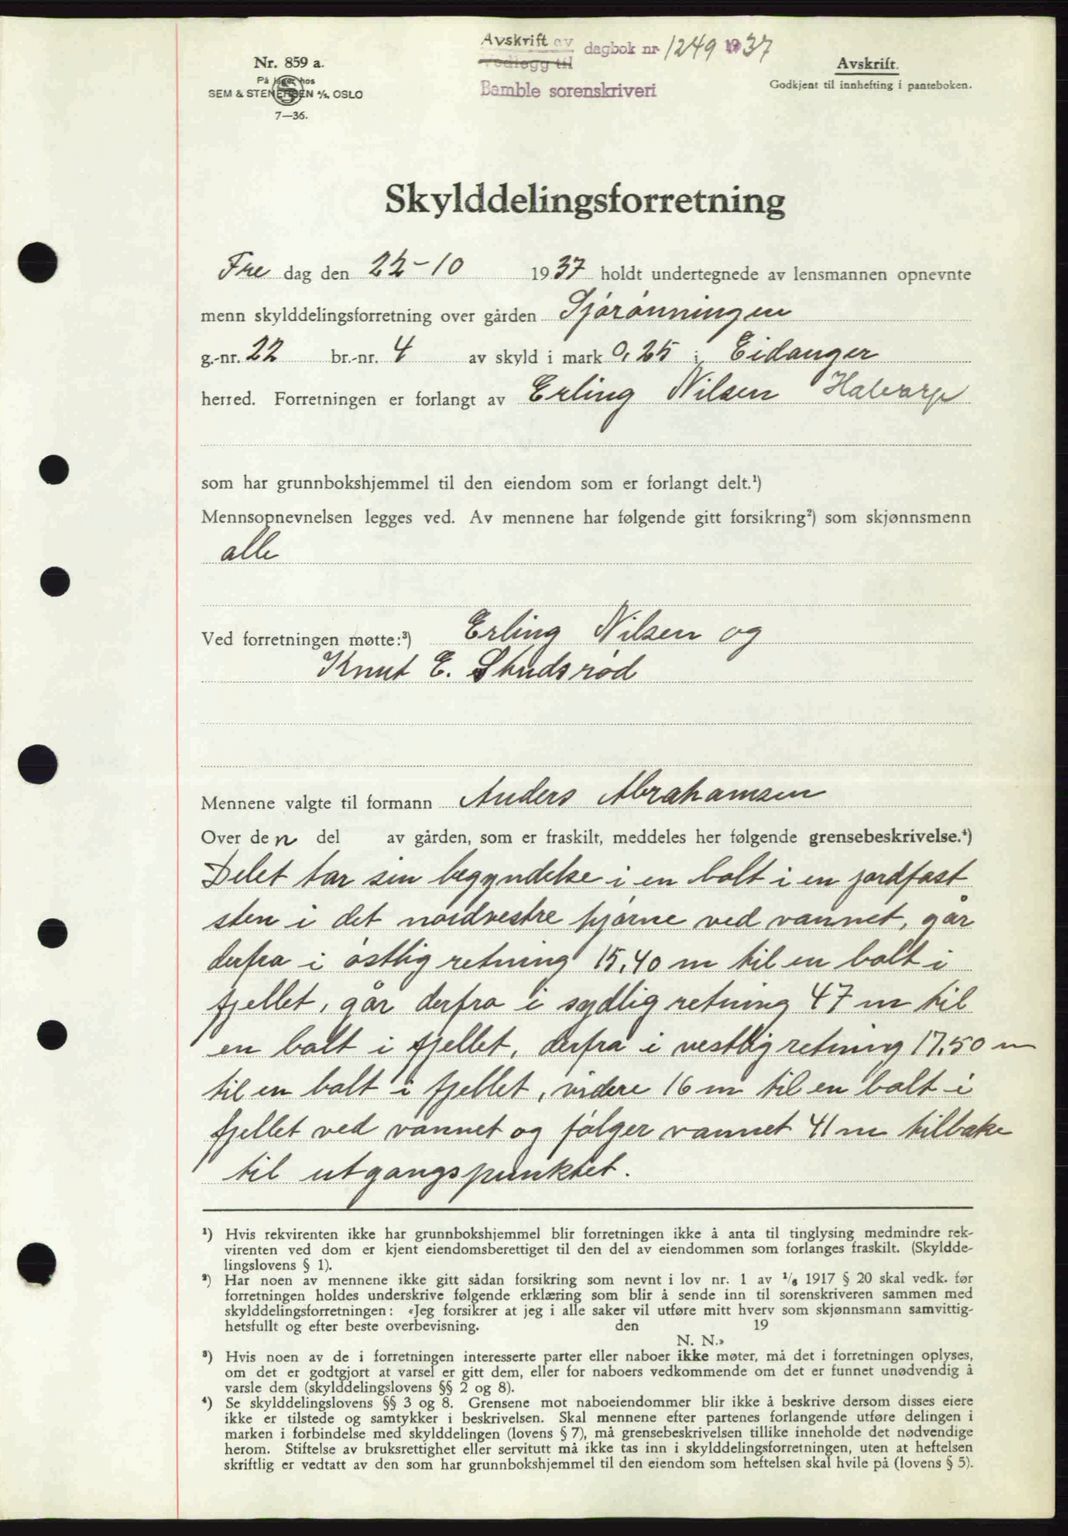 Avskrift av dagbok nr 1249 1937
vedlegg til
Bamble sorenskriveri
Nr. 859 a.
På lager hos
SEM & STENERSEN A/S. OSLO
7—36.
Avskrift.
Godkjent til innhefting i panteboken.
Skylddelingsforretning
Fre dag den 22-10 1937 holdt undertegnede av lensmannen opnevnte
menn skylddelingsforretning over gården Sjørønningen
g.-nr. 22 br.-nr. 4 av skyld i mark 0,25 i Eidanger
herred. Forretningen er forlangt av Erling Nilsen Halvarp
som har grunnbokshjemmel til den eiendom som er forlangt delt.¹)
Mennsopnevnelsen legges ved. Av mennene har følgende gitt forsikring²) som skjønnsmenn
alle
Ved forretningen møtte:³) Erling Nilsen og
Knut E. Skudsrød
Mennene valgte til formann Anders Abrahamsen
Over den del av gården, som er fraskilt, meddeles her følgende grensebeskrivelse.⁴)
Delet tar sin begyndelse i en bolt i en jordfast
sten i det nordvestre hjørne ved vannet, går
derfra i østlig retning 15,40 m til en bolt i
fjellet, går derfra i sydlig retning 47 m til
en bolt i fjellet, derfra i vestlig retning 17,50 m
til en bolt i fjellet, videre 16 m til en bolt i
fjellet ved vannet og følger vannet 41 m tilbake
til utgangspunktet.
¹) Hvis rekvirenten ikke har grunnbokshjemmel blir forretningen ikke å anta til tinglysing medmindre rek-
virenten ved dom er kjent eiendomsberettiget til den del av eiendommen som forlanges fraskilt. (Skyldde-
lingslovens § 1).
²) Har noen av mennene ikke gitt sådan forsikring som nevnt i lov nr. 1 av 1/6 1917 § 20 skal vedk. før
forretningen holdes underskrive følgende erklæring som blir å sende inn til sorenskriveren sammen med
skylddelingsforretningen: «Jeg forsikrer at jeg i alle saker vil utføre mitt hverv som skjønnsmann samvittig-
hetsfullt og efter beste overbevisning. den 19
N. N.»
³) Hvis noen av de i forretningen interesserte parter eller naboer ikke møter, må det i forretningen oplyses,
om det er godtgjort at varsel er gitt dem, eller for naboers vedkommende om det er funnet unødvendig å
varsle dem (skylddelingslovens §§ 2 og 8).
⁴) Se skylddelingslovens §§ 3 og 8. Grensene mot naboeiendommer blir ikke å beskrive dersom disses eiere
ikke er tilstede og samtykker i beskrivelsen. Skal mennene efter partenes forlangende utføre delingen i
marken i forbindelse med skylddelingen (lovens § 7), må grensebeskrivelsen tillike inneholde det nødvendige
herom. Stiftelse av bruksrettighet eller servitutt må ikke tas inn i skylddelingsforretningen, uten at heftelsen
skriftlig er vedtatt av den som har grunnbokshjemmel til den eiendom som heftelsen skal hvile på (lovens § 5).